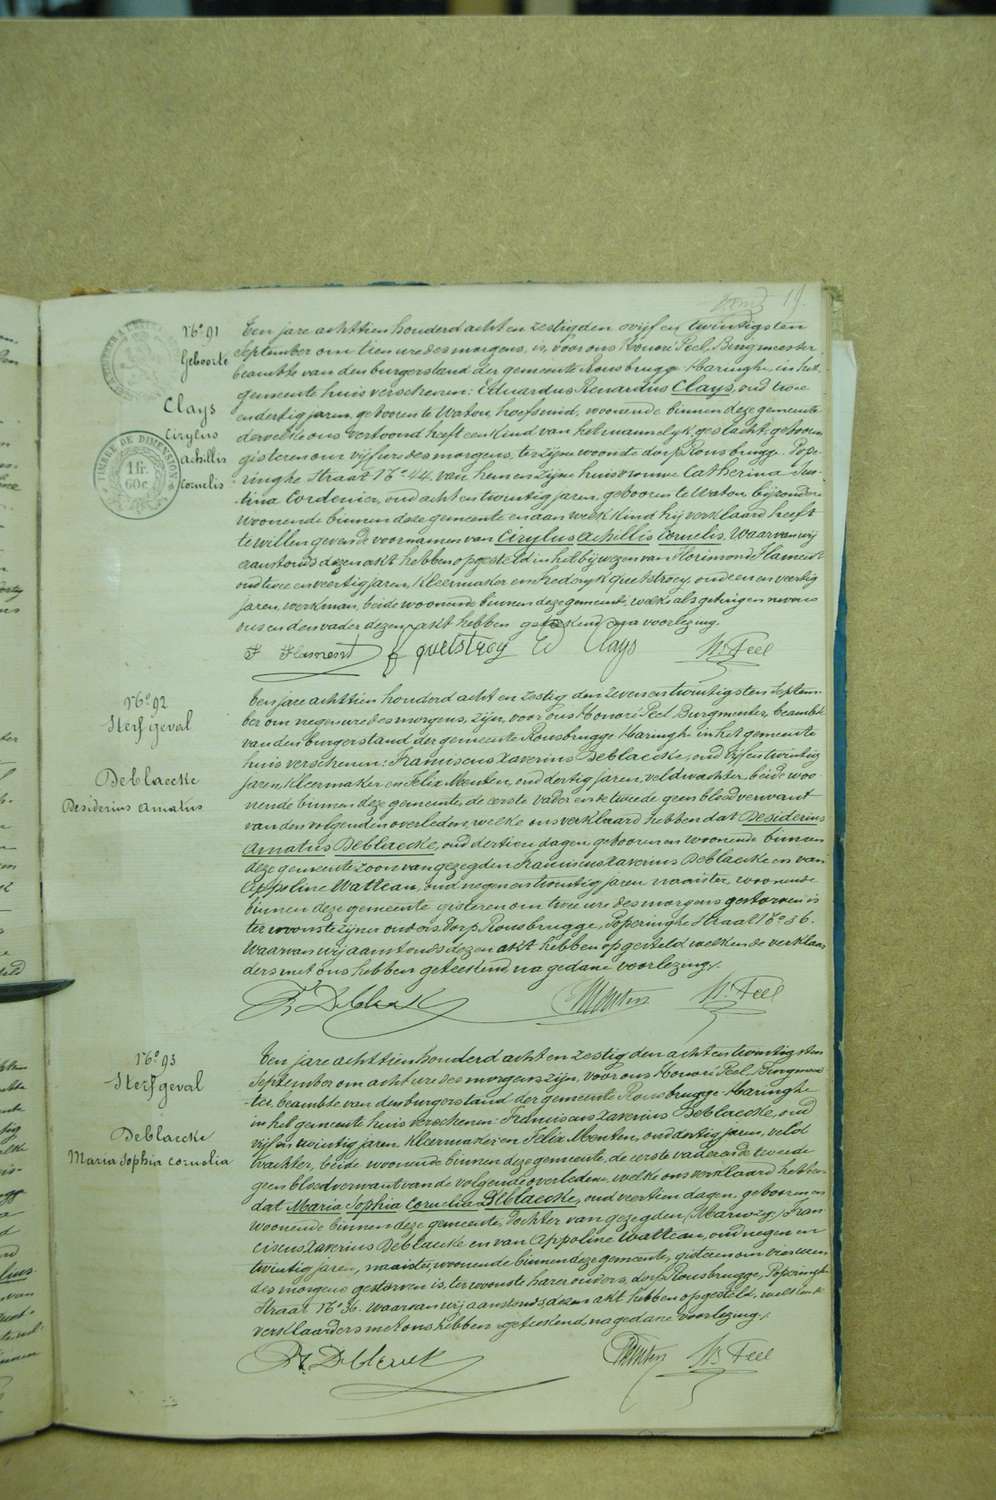 19.
N° 91
Geboorte
Clays
Cirylus
Achillis
Cornelis
TIMBRE DE DIMENSION
1 fr.
60 c.
Ten jare achttien honderd acht en zestig den vijf en twintigsten
September om tien ure des morgens, is, voor ons Honoré Peel, Burgmeester
beambte van den burgerstand der gemeente Rousbrugge-Haringhe, in het
gemeente huis verschenen: Eduardus Renardus Clays, oud twee
en dertig jaren, geboren te Watou, hoefsmid, woonende binnen deze gemeente
derwelke ons vertoond heeft een kind van het mannelijk geslacht, geboren
gisteren om vijf ure des morgens, ter zijne woonste dorp Rousbrugge, Pope-
ringhe Straat N° 44, van hem en zijne huisvrouwe Catherina Jus-
tina Cordenier, oud acht en twintig jaren, geboren te Watou bijzondere
woonende binnen deze gemeente en aan welk kind hij verklaard heeft
te willen geven de voornamen van Cirylus Achillis Cornelis. Waarvan wij
aanstonds dezen akt hebben opgesteld in het bijwezen van Florimond Flament
oud twee en veertig jaren, Kleermaker en Frederyk Quetstroey, oud een en veertig
jaren, werkman, beide woonende binnen deze gemeente, welke als getuigen nevens
ons en den vader dezen akt hebben geteekend na voorlezing.
F Flament f quetstroey Ed Clays H. Peel
N° 92
Sterfgeval
Deblaecke
Desiderius Amatus
Ten jare achttien honderd acht en zestig den zeven en twintigsten Septem-
ber om negen ure des morgens, zijn, voor ons Honoré Peel Burgmeester, beambte
van den burgerstand der gemeente Rousbrugge Haringhe in het gemeente
huis verschenen: Franciscus Xaverius Deblaecke, oud vijf en twintig
jaren, Kleermaker en Felix Menten, oud dertig jaren, veldwachter, beide woo-
nende binnen deze gemeente, de eerste vader en de tweede geen bloedverwant
van den volgenden overleden, welke ons verklaard hebben dat Desiderius
Amatus Deblaecke, oud dertien dagen, geboren en woonende binnen
deze gemeente zoon van gezegden Franciscus Xaverius Deblaecke en van
Appoline Watteau, oud negen en twintig jaren naaister, woonende
binnen deze gemeente gisteren om twee ure des morgens gestorven is
ter woonste zijner ouders, dorp Rousbrugge, Poperinghe Straat N° 36.
Waarvan wij aanstonds dezen akt hebben opgesteld welken de verklaar
ders met ons hebben geteekend na gedane voorlezing.
Menten H. Peel
N° 93
Sterfgeval
Deblaecke
Maria Sophia Cornelia
Ten jare achttien honderd acht en zestig den acht en twintigsten
September om acht ure des morgens zijn, voor ons Honoré Peel Burgmees-
ter, beambte van den burgerstand der gemeente Rousbrugge-Haringhe
in het gemeente huis verschenen Franciscus Xaverius Deblaecke, oud
vijf en twintig jaren Kleermaker en Felix Menten, oud dertig jaren, veld
wachter, beide woonende binnen deze gemeente, de eerste vader en de tweede
geen bloedverwant van de volgende overleden, welke ons verklaard hebben
dat Maria Sophia Cornelia Deblaecke, oud veertien dagen, geboren en
woonende binnen deze gemeente, Dochter van gezegden Fran
ciscus Xaverius Deblaecke en van Appoline Watteau, oud negen en
twintig jaren, naaister, woonende binnen deze gemeente, gisteren om vier uren
des morgens gestorven is, ter woonste harer ouders, dorp Rousbrugge, Poperinghe
Straat N° 36. Waarvan wij aanstonds dezen akt hebben opgesteld, welken de
verklaarders met ons hebben geteekend na gedane voorlezing.
Menten H. Peel